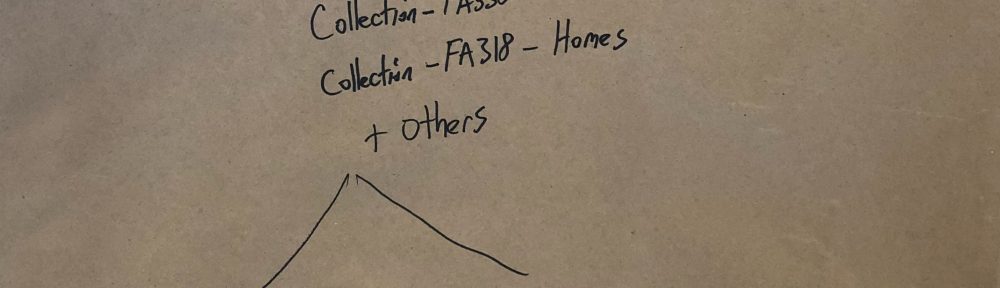 Collection -
Collection - FA318 - Homes
+ others